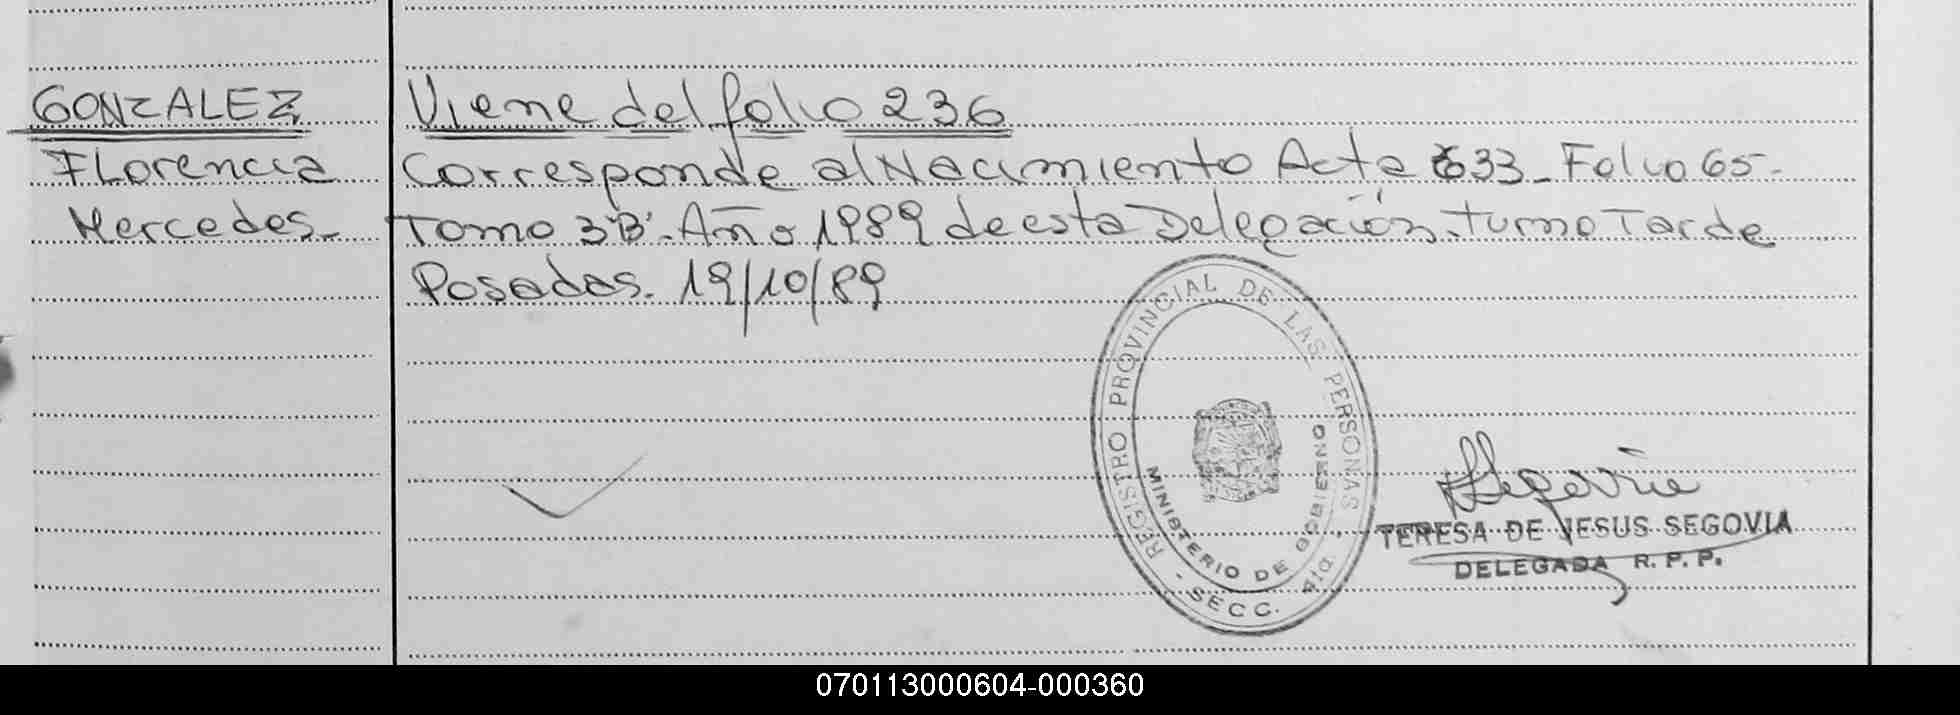 GONZALEZ
Florencia
Mercedes.
Viene del folio 236
Corresponde al Nacimiento Acta 633 - Folio 65 -
Tomo 3"B". Año 1989 de esta Delegación. turno Tarde
Posadas. 19/10/89
REGISTRO PROVINCIAL DE LAS PERSONAS
MINISTERIO DE GOBIERNO
- SECC. 4ta.
Segovia
TERESA DE JESUS SEGOVIA
DELEGADA R. P. P.
070113000604-000360